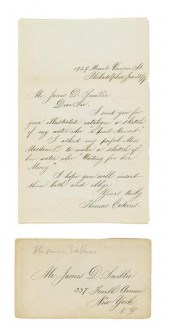 1729 Mount Vernon St.
Philadelphia
Mr. James D. Smillie
Dear Sir.
I send you for
your Illustrated catalogue a sketch
of my water color
I asked my pupil Miss
to make a sketch of
her water color "Waiting for her
I hope you will
them both and oblige
Yours truly
Thomas Eakins
Mr. James D. Smillie
337 Fourth Avenue
New York
N.Y.